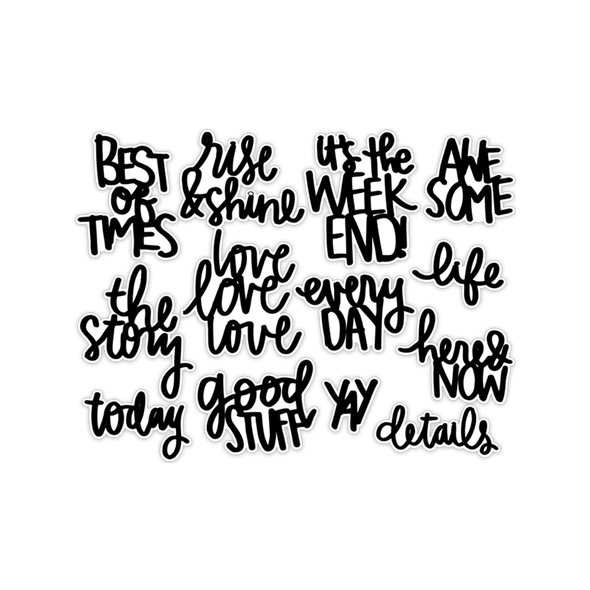 BEST
of
TIMES
rise
&shine
it's the
WEEK
END!
AWE
SOME
the
story
love
love
love
every
DAY
life
here&
NOW
today
good
STUFF
YAY
details